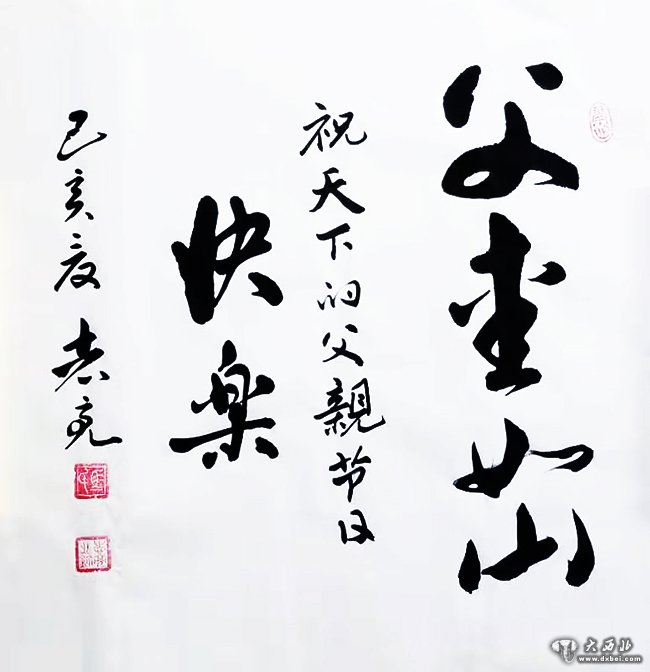 父重如山
祝天下的父親节日
快楽
己亥夏
大西北
www.dxbei.com